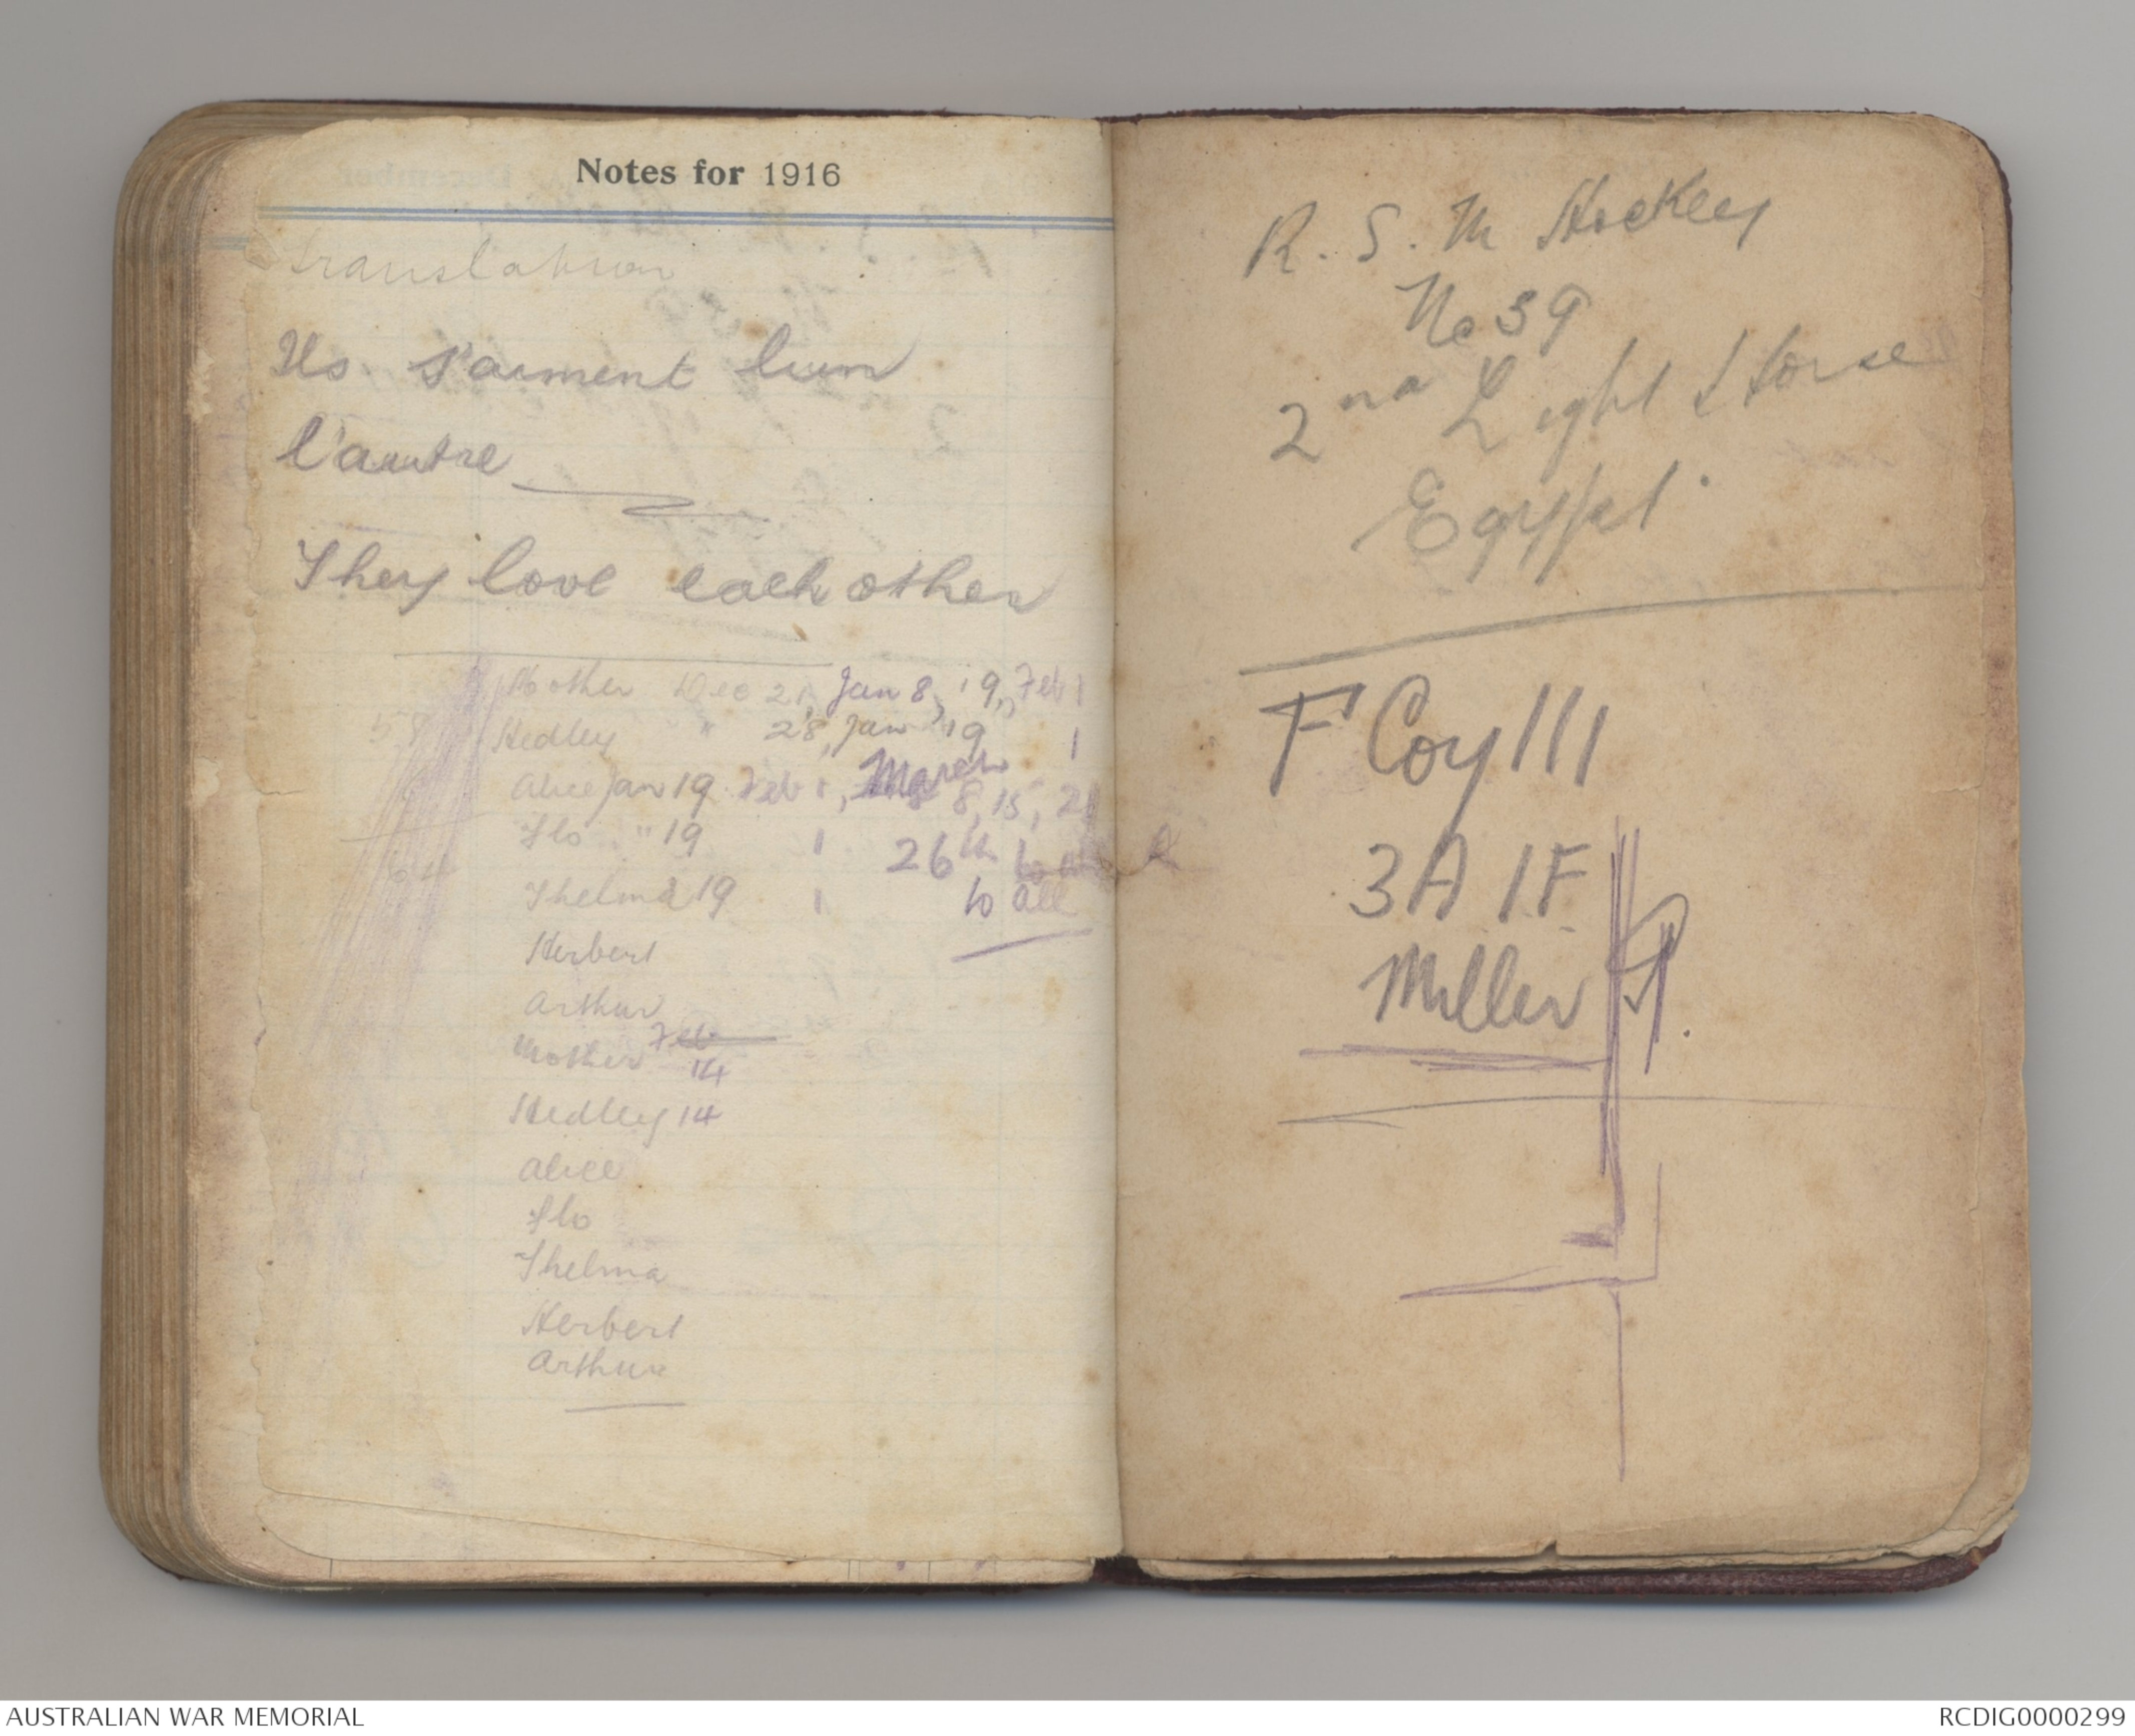 Notes for 1916
Translation
Ils s'aiment l'un
l'autre
They love each other
Mother Dec 21, Jan 8, 19, Feb 1
58 Hedley " 28, Jan 19 1
Alice Jan 19 Feb 1, March 8, 15, 21
Flo " 19 1 26th to
64
Thelma 19 1 to all
Herbert
Arthur
Mother Feb 14
Hedley 14
Alice
Flo
Thelma
Herbert
Arthur
R. S. M Hockey
No 39
2nd Light Horse
Egypt.
F Coy 111
3 A I F
Miller
AUSTRALIAN WAR MEMORIAL
RCDIG0000299